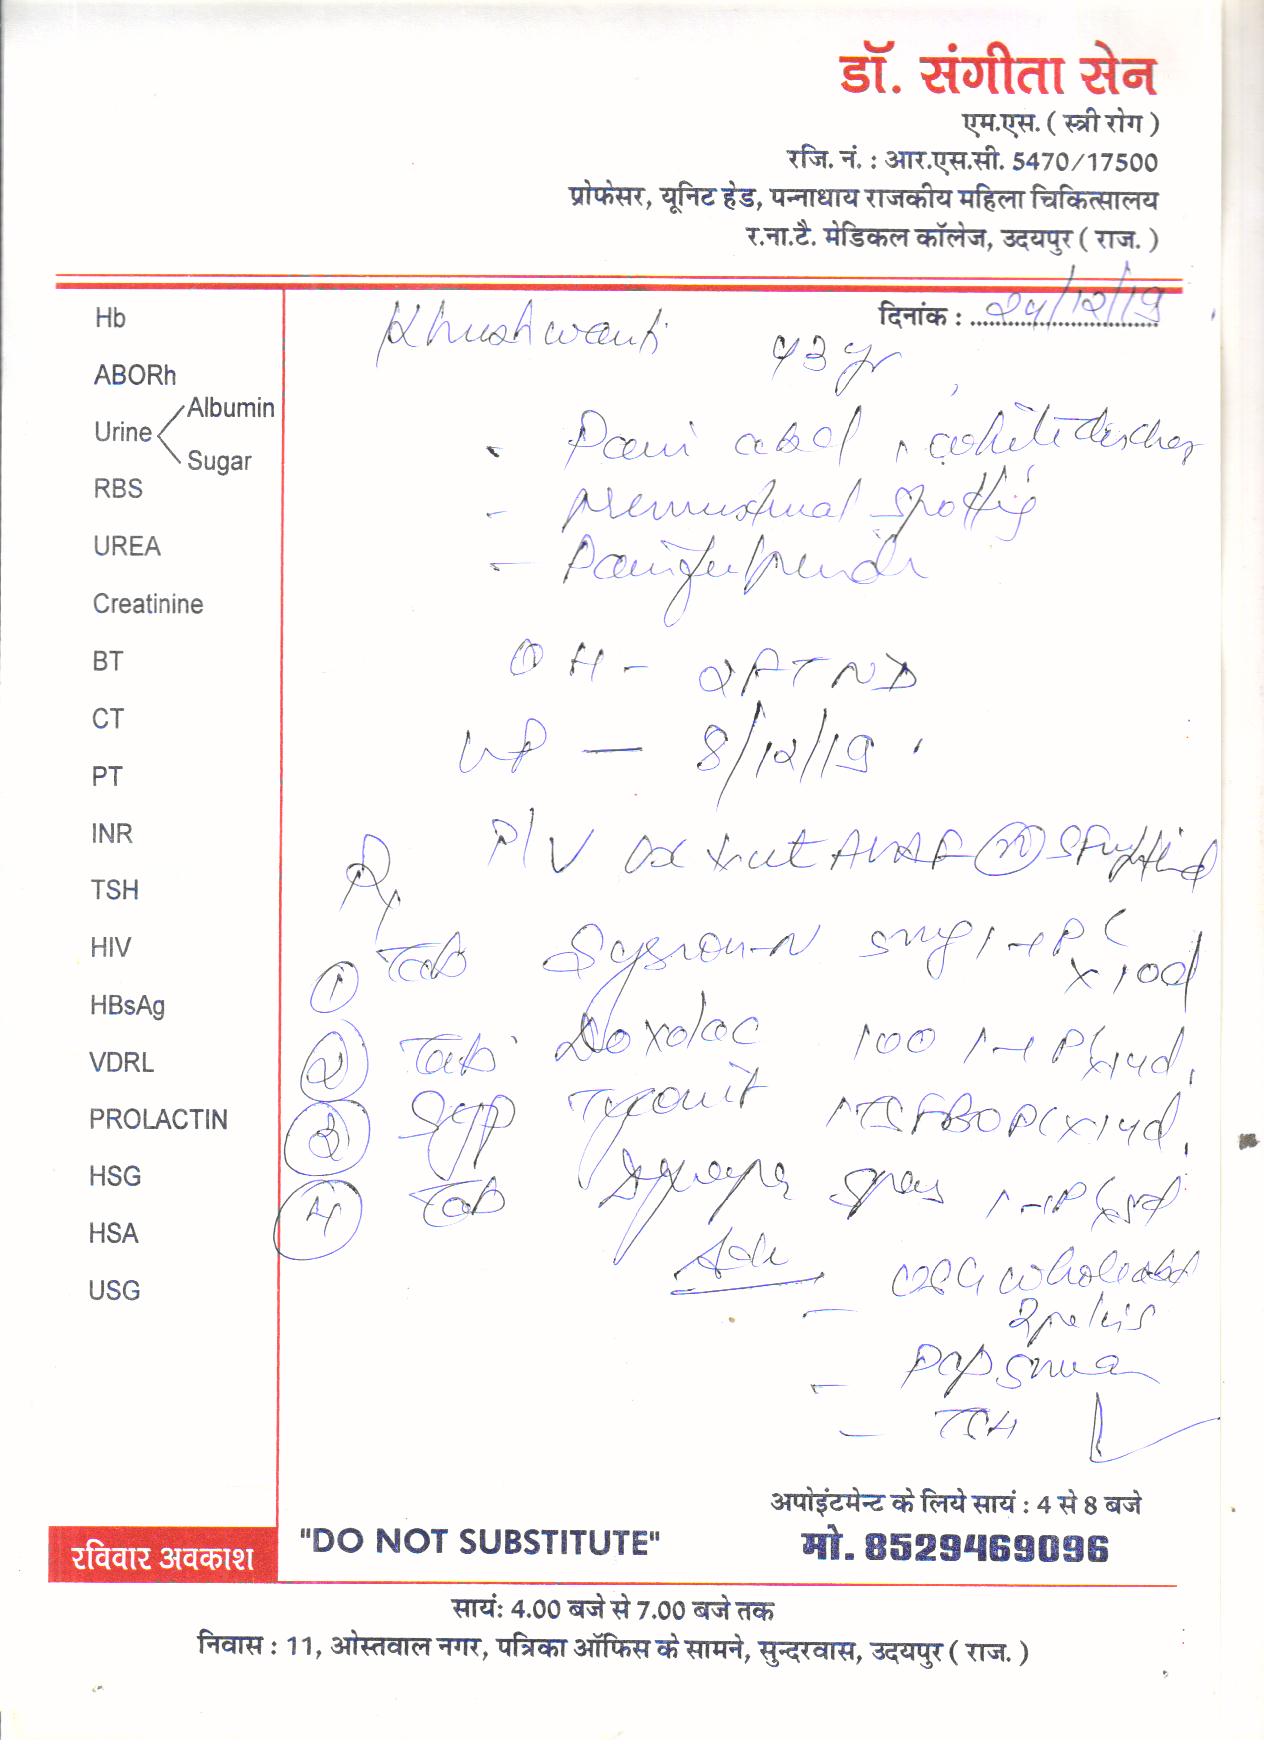 डॉ. संगीता सेन
एम.एस. ( स्त्री रोग )
रजि. नं. : आर.एस.सी. 5470/17500
प्रोफेसर, यूनिट हेड, पन्नाधाय राजकीय महिला चिकित्सालय
र.ना.टै. मेडिकल कॉलेज, उदयपुर ( राज. )
दिनांक : 24/12/19
Hb
ABORh
Urine Albumin
Sugar
RBS
UREA
Creatinine
BT
CT
PT
INR
TSH
HIV
HBsAg
VDRL
PROLACTIN
HSG
HSA
USG
43 yr
- Pain abd, white
- premenstrual spotting
- Pain
OH - 2FTND
LMP - 8/12/19
P/V
Rx
① Tab N 5mg 1-1 x 10d
② Tab Doxolac 100 1-1 x 14d
③ Syp x 14d
④ Tab
Adv
- USG whole abd
& pelvis
- PAP smear
- TSH
अपोइंटमेन्ट के लिये सायं : 4 से 8 बजे
मो. 8529469096
"DO NOT SUBSTITUTE"
रविवार अवकाश
सायं: 4.00 बजे से 7.00 बजे तक
निवास : 11, ओस्तवाल नगर, पत्रिका ऑफिस के सामने, सुन्दरवास, उदयपुर ( राज. )